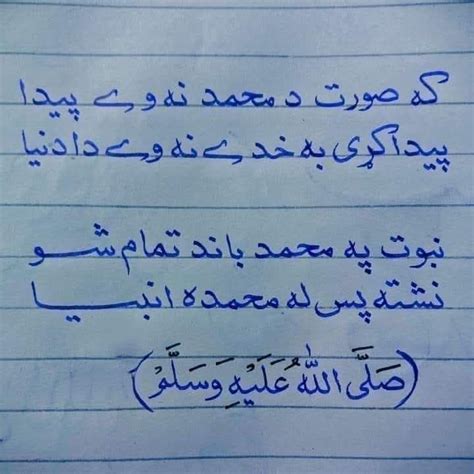 که صورت د محمد نه وے پیدا
پیدا کړی به خدے نه وے دا دنیا
نبوت په محمد باند تمام شو
نشته پس له محمده انبیا
(صَلَّی اللهُ عَلَیْهِ وَسَلَّمْ)